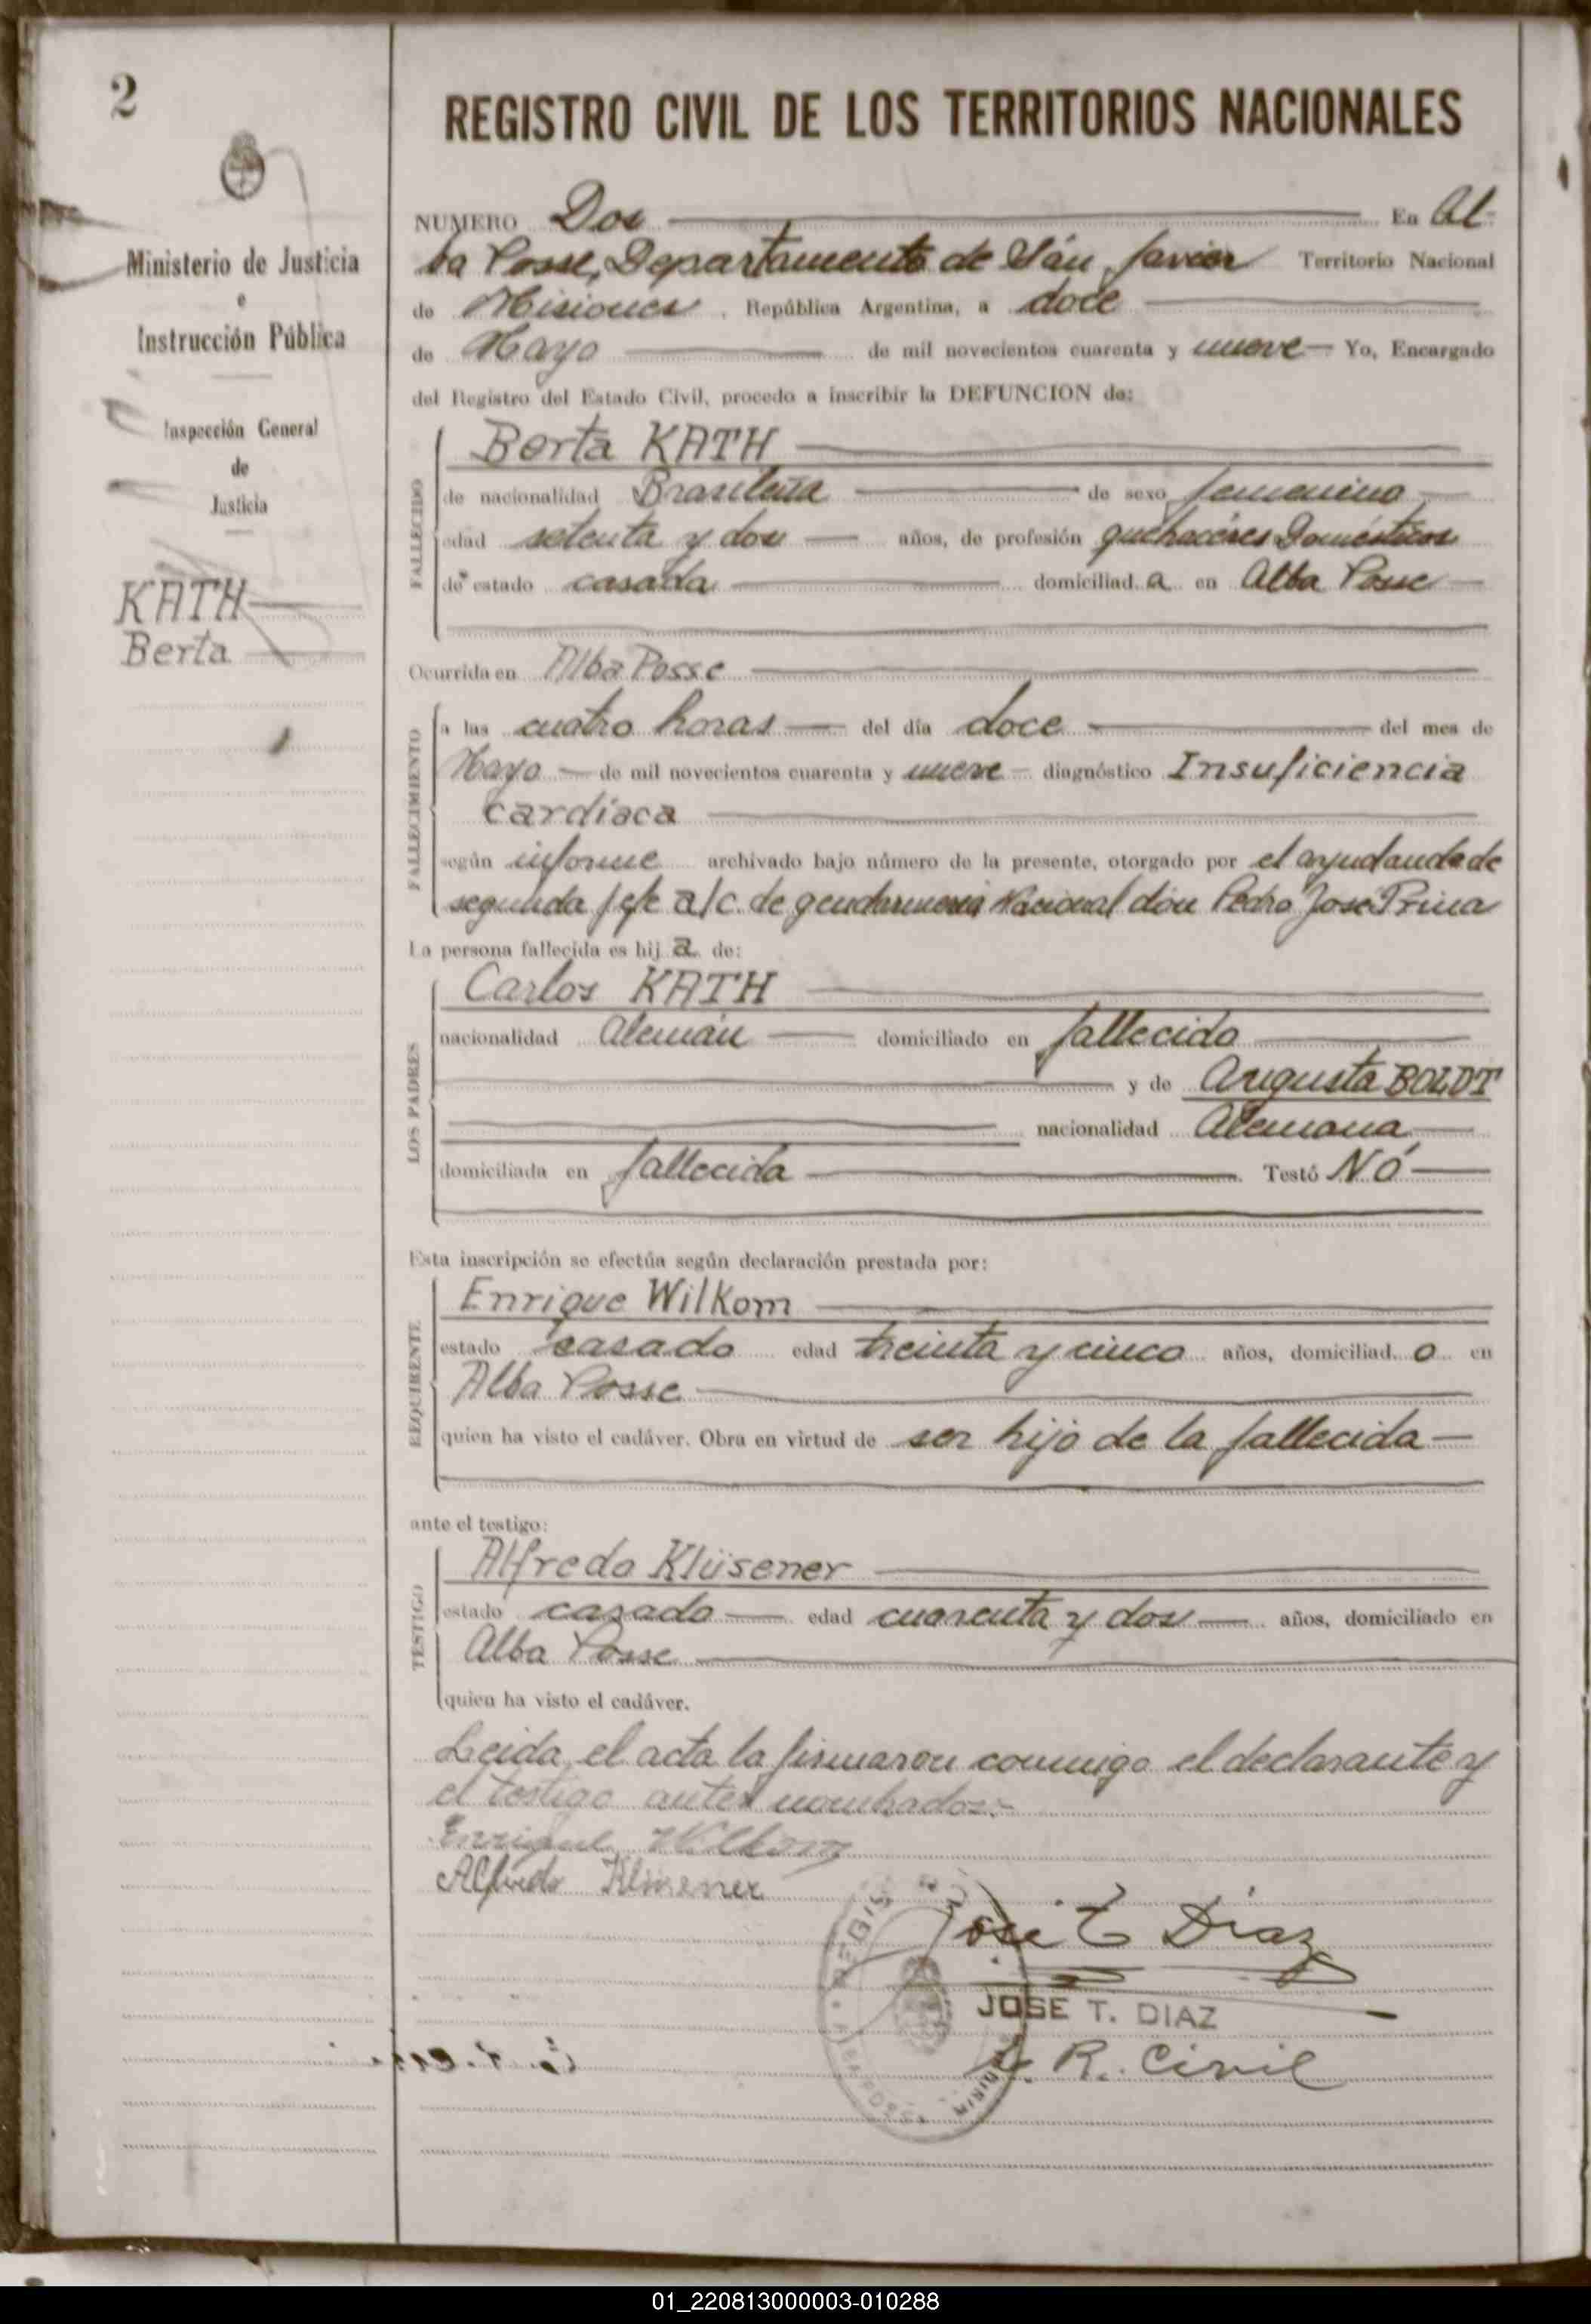 2
REGISTRO CIVIL DE LOS TERRITORIOS NACIONALES
Ministerio de Justicia
e
Instrucción Pública
Inspección General
de
Justicia
KATH
Berta
NUMERO Dos En Al-
ba Posse, Departamento de Sán Javier Territorio Nacional
de Misiones, República Argentina, a doce
de Mayo de mil novecientos cuarenta y nueve Yo, Encargado
del Registro del Estado Civil, procedo a inscribir la DEFUNCION de:
FALLECIDO
Berta KATH
de nacionalidad Brasileña de sexo femenino
edad setenta y dos años, de profesión quehacéres Domésticos
de estado casada domiciliad a en Alba Posse
Ocurrida en Alba Posse
FALLECIMIENTO
a las cuatro horas del día doce del mes de
Mayo de mil novecientos cuarenta y nueve diagnóstico Insuficiencia
cardíaca
según informe archivado bajo número de la presente, otorgado por el ayudande de
segunda jefe a/c. de gendarmeria Nacional don Pedro José Prina
La persona fallecida es hij a de:
LOS PADRES
Carlos KATH
nacionalidad Alemán domiciliado en fallecido
y de Augusta BOLDT
nacionalidad Alemana
domiciliada en fallecida Testó Nó
Esta inscripción se efectúa según declaración prestada por:
REQUIRENTE
Enrique Wilkom
estado casado edad treinta y cinco años, domiciliad o en
Alba Posse
quien ha visto el cadáver. Obra en virtud de ser hijo de la fallecida
ante el testigo:
TESTIGO
Alfredo Klüsener
estado casado edad cuarenta y dos años, domiciliado en
Alba Posse
quien ha visto el cadáver.
Leida el acta la firmaron conmigo el declarante y
el testigo antes nombrados:-
Enrique Wilkom
Alfredo Klüsener
José T Díaz
JOSE T. DIAZ
R. Civil
01_220813000003-010288